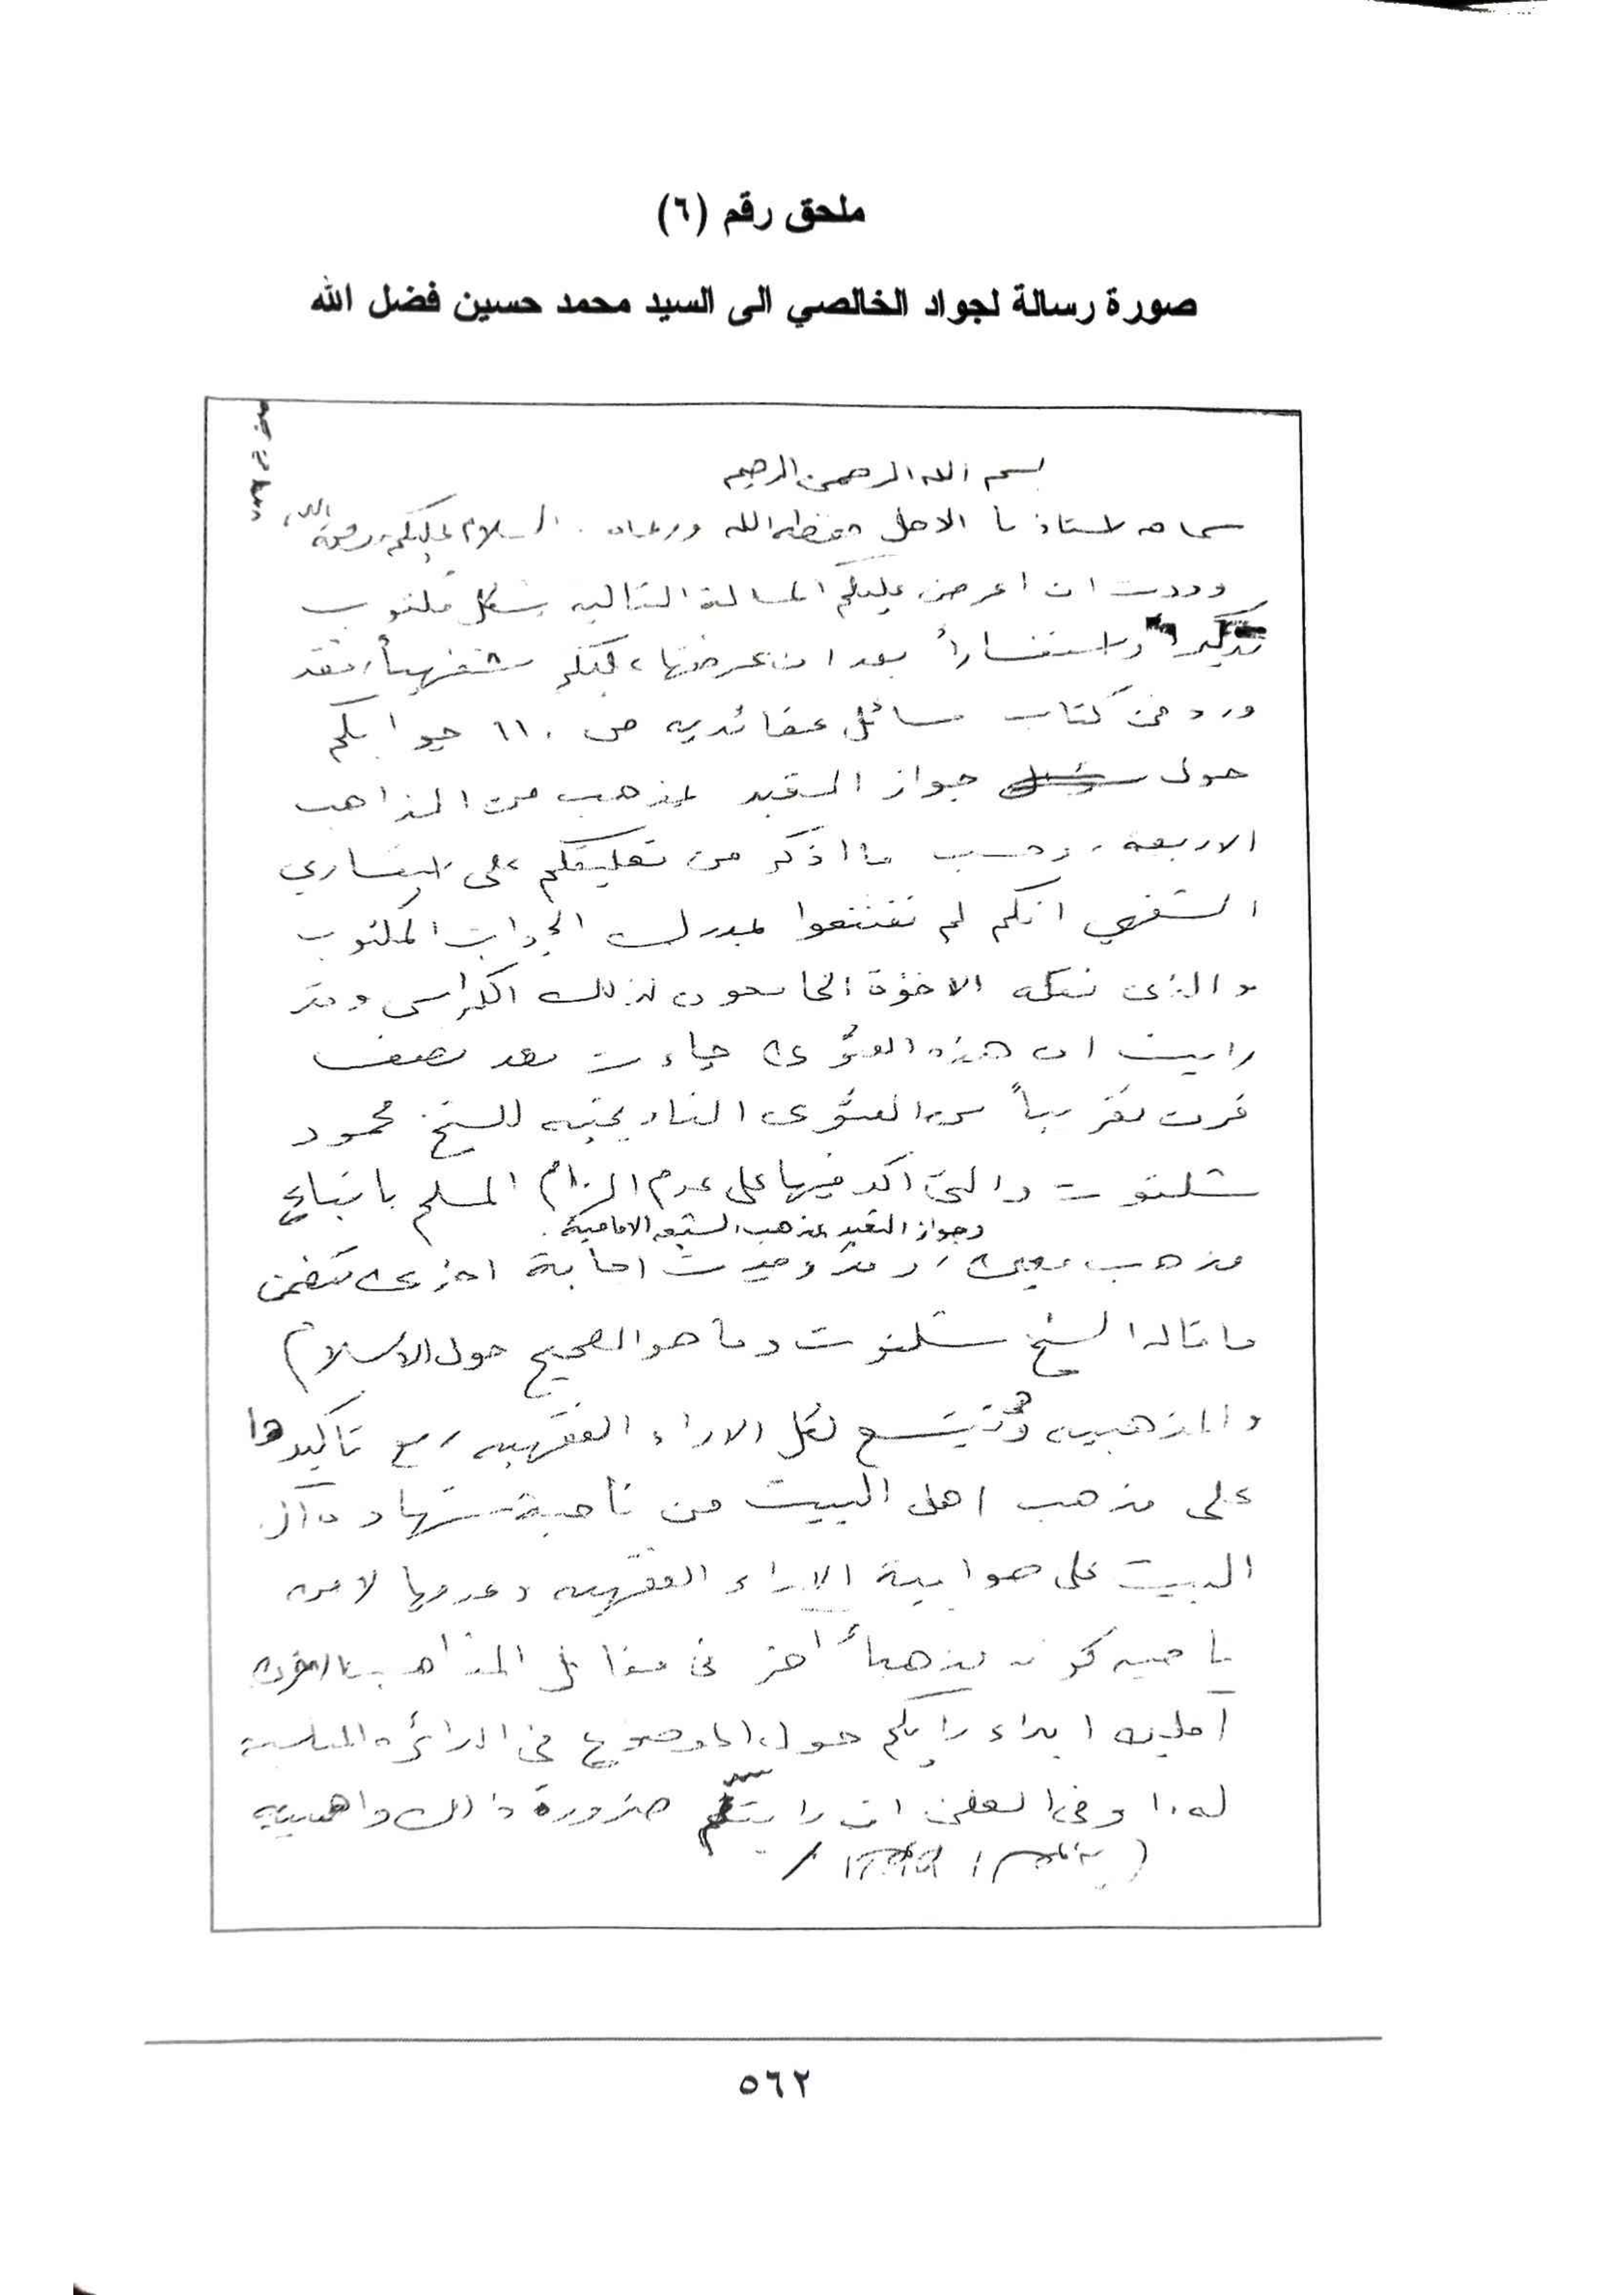 ملحق رقم (٦)
صورة رسالة لجواد الخالصي الى السيد محمد حسين فضل الله
بسم الله الرحمن الرحيم
سماحة استاذنا الاجل حفظه الله ورعاه . السلام عليكم ورحمة الله
وددت ان اعرض عليكم المسالة التالية بشكل مكتوب
تذكيراً واستفساراً بعد ان عرضتها عليكم شفهياً، فقد
ورد في كتاب مسائل عقائدية ص ١١٠ جوابكم
حول جواز التعبد بمذهب من المذاهب
الاربعة، وحسب ما اذكر من تعليقكم على استفساري
الشفهي انكم لم تقتنعوا بمدرك الجواب المكتوب
والذي نقله الاخوة الجامعون لذلك الكراس وقد
رايت ان هذه الفتوى جاءت بعد نصف
قرن تقريباً من الفتوى التاريخية للشيخ محمود
شلتوت والتي اكد فيها على عدم الزام المسلم باتباع
وجواز التعبد بمذهب الشيعة الامامية.
مذهب معين، وقد وجدت اجابة اخرى تتضمن
ما قاله الشيخ شلتوت وما هو الصحيح حول الاسلام
والمذهبية، تتسع لكل الاراء الفقهية، مع تاكيدها
على مذهب اهل البيت من ناحية شهادة آل
البيت على صوابية الاراء الفقهية وعدمها لا من
ناحية كونه مذهباً اخر في مقابل المذاهب الاخرى
آملين ابداء رايكم حول الموضوع في الدائرة المناسبة
له، او في العلن ان رايتم ضرورة ذلك واهميته